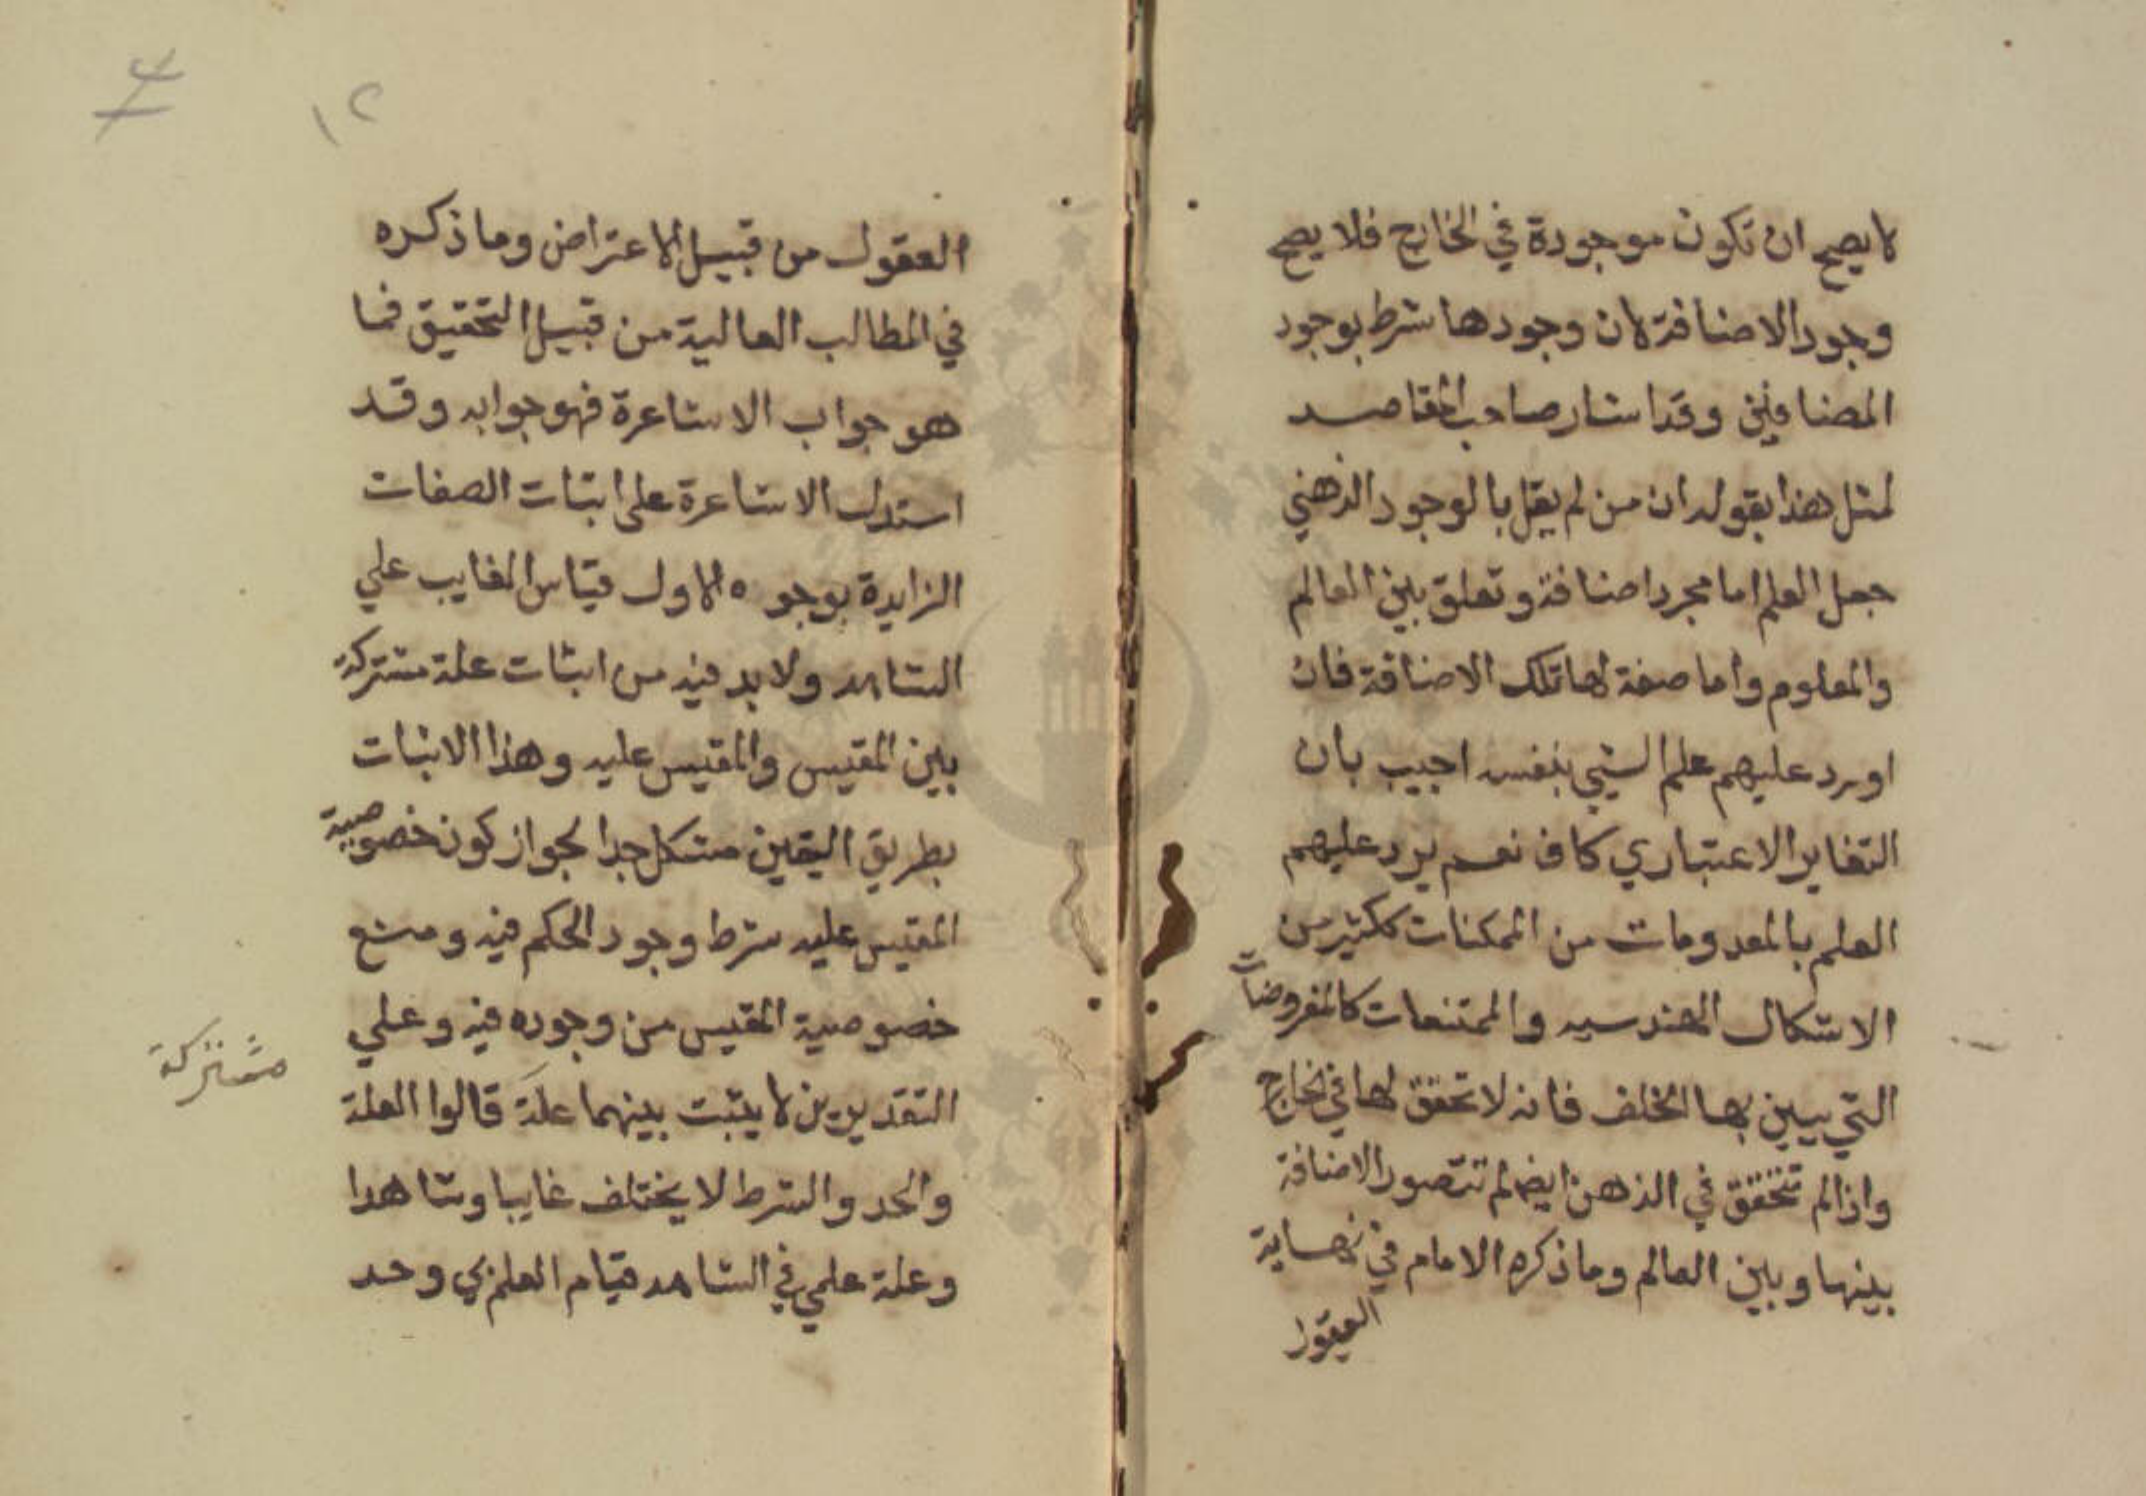 لا يصح ان تكون موجودة في الخارج فلا يصح
وجود الاضافة لان وجودها شرط بوجود
المضافين وقد اشار صاحب المقاصد
لمثل هذا بقوله ان من لم يقل بالوجود الذهني
جعل العلم اما مجرد اضافة وتعلق بين العالم
والمعلوم واما صفة لها تلك الاضافة فان
اورد عليهم علم الشي بنفسه اجيب بان
التغاير الاعتباري كاف نعم يرد عليهم
العلم بالمعدومات من الممكنات ككثير من
الاشكال الهندسيه والممتنعات كالمفروضات
التي يبين بها الخلف فانه لا تحقق لها في الخارج
واذا لم تتحقق في الذهن ايضا لم تتصور الاضافة
بينها وبين العالم وما ذكره الامام في نهاية
العقول
١٢
العقول من قبيل الاعتراض وما ذكره
في المطالب العالية من قبيل التحقيق فما
هو جواب الاشاعرة فهو جوابه وقد
استدل الاشاعرة على اثبات الصفات
الزايدة بوجوه الاول قياس الغايب علي
الشاهد ولا بد فيه من اثبات علة مشتركة
بين المقيس والمقيس عليه وهذا الاثبات
بطريق اليقين مشكل جدا لجواز كون خصوصية
المقيس عليه شرط وجود الحكم فيه ومنع
خصوصية المقيس من وجوده فيه وعلي
التقديرين لا يثبت بينهما علة قالوا العلة
مشتركة
والحد والشرط لا يختلف غايبا وشاهدا
وعلة علمي في الشاهد قيام العلم بي وحد